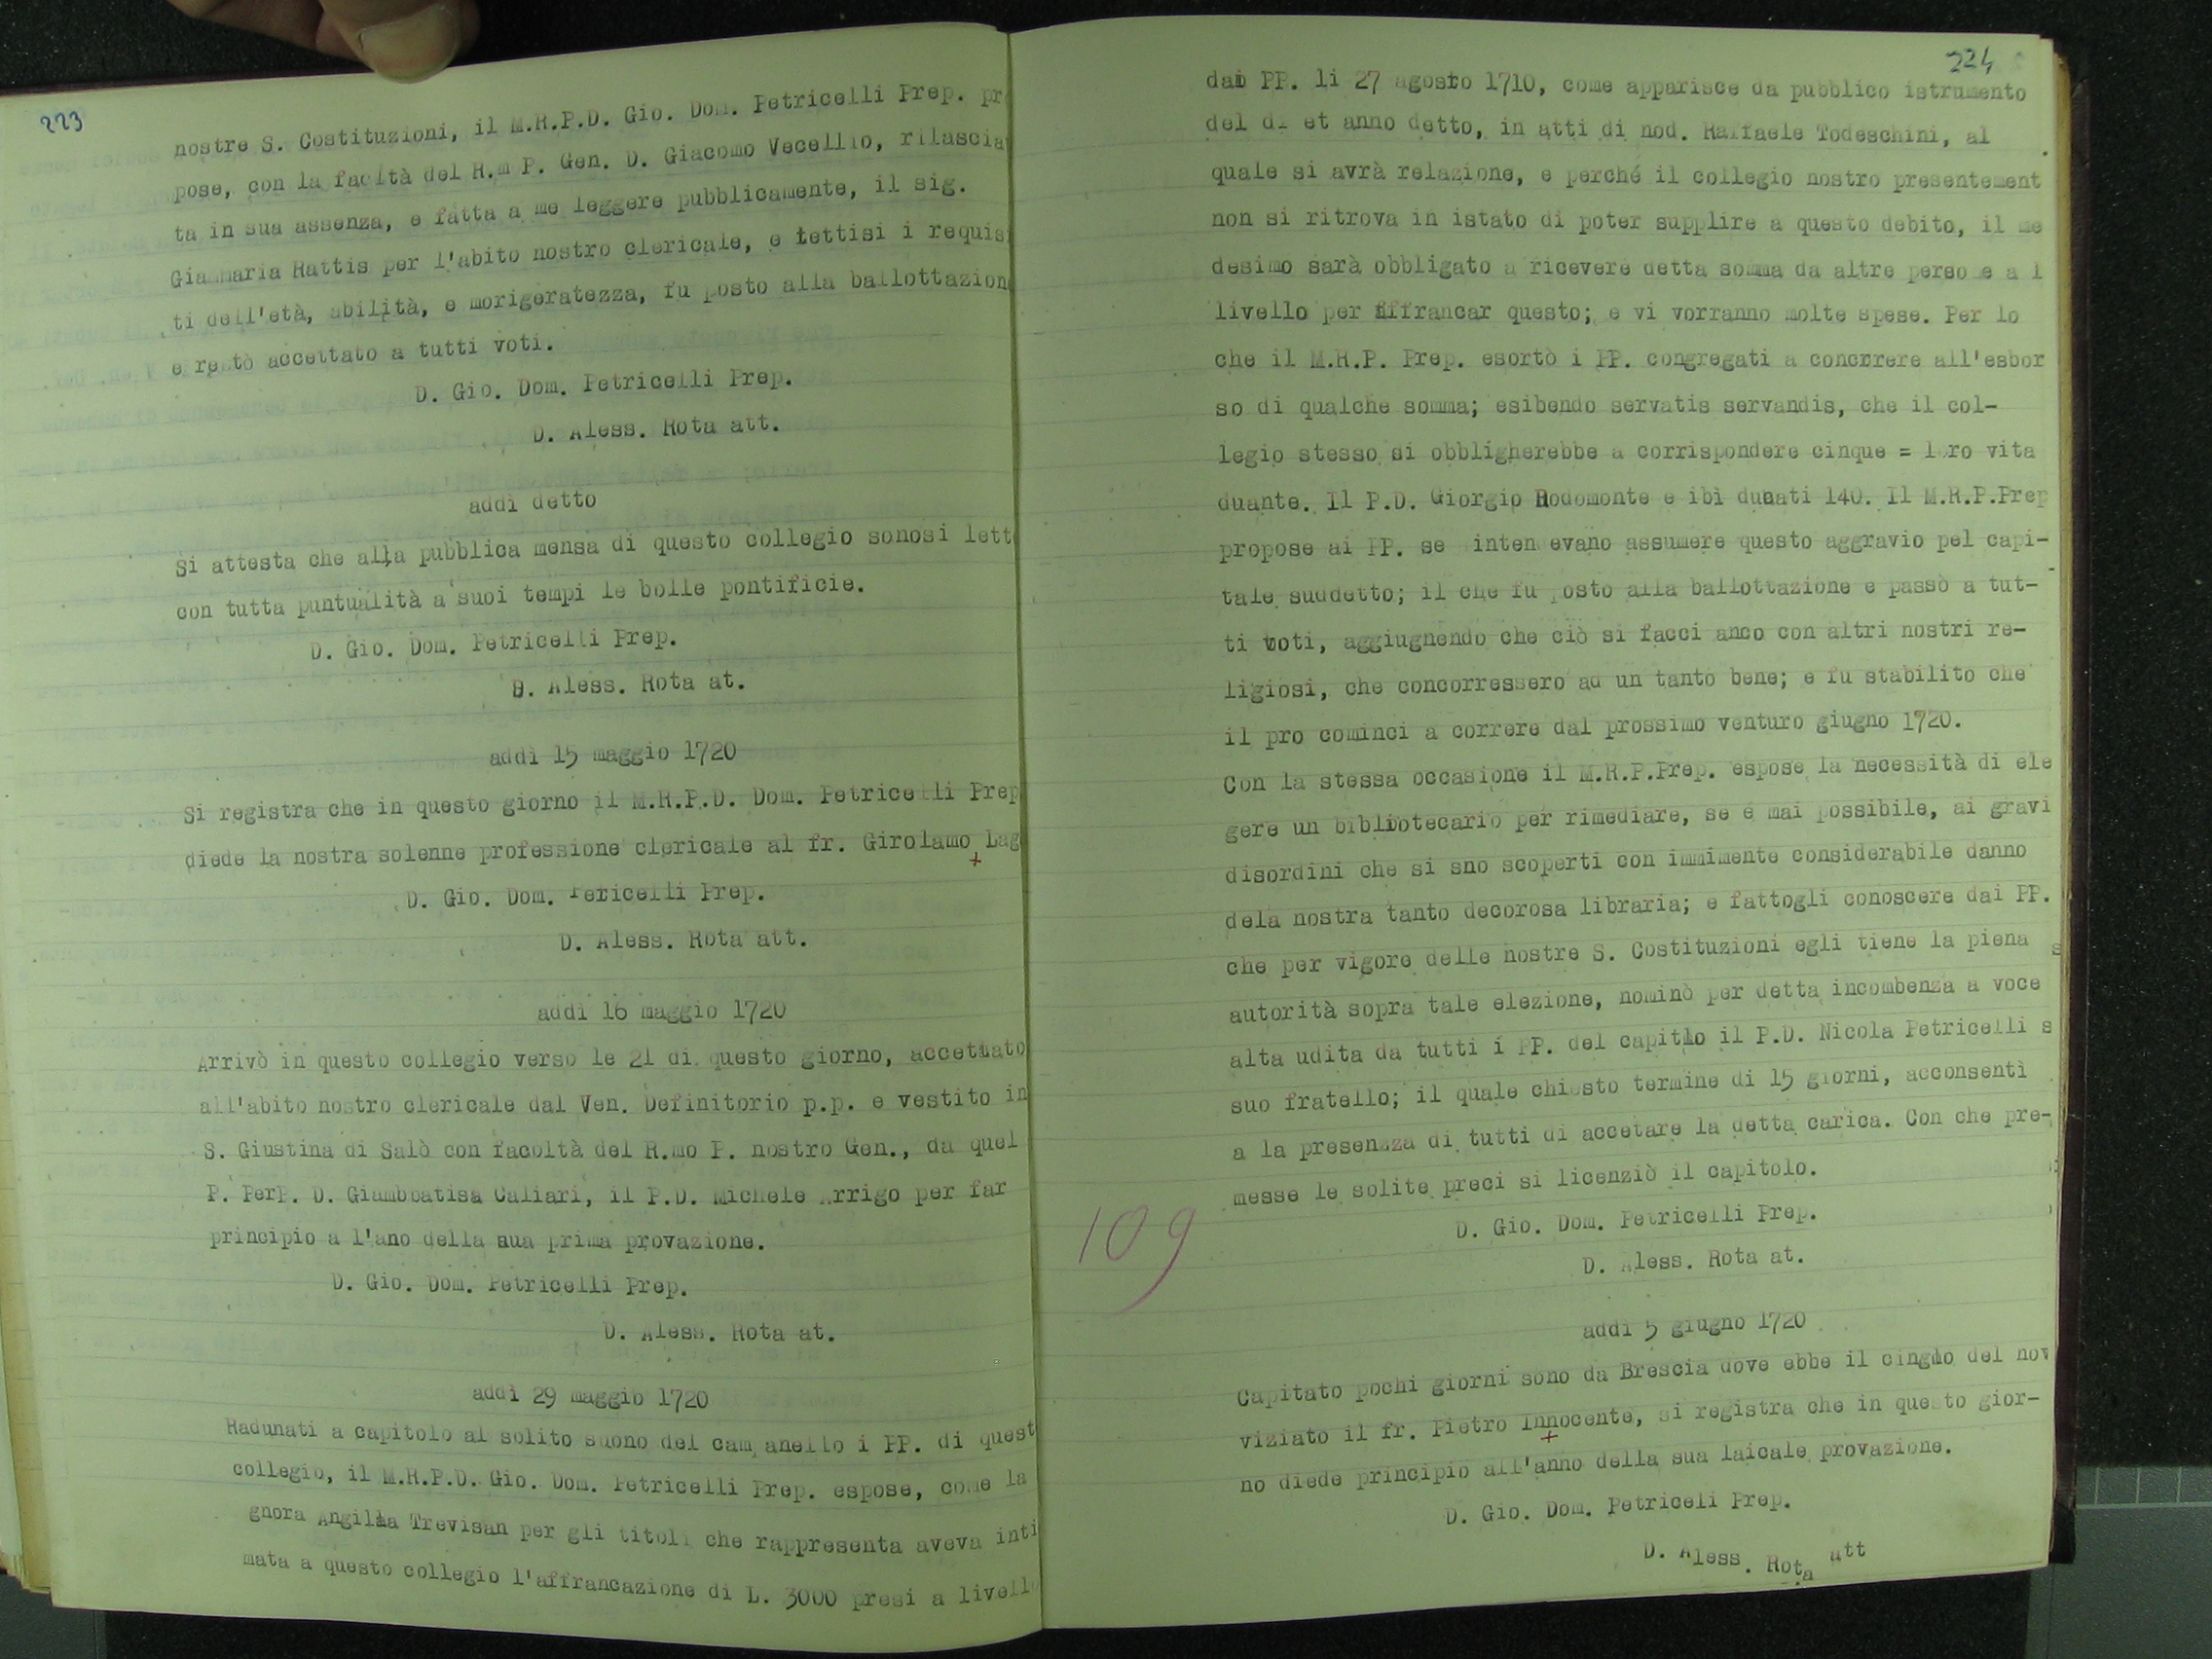 223
nostre S. Costituzioni, il M.R.P.D. Gio. Dom. Petricelli Prep. pr
pose, con la facltà del R.m P. Gen. D. Giacomo Vecellio, rilascia
ta in sua assenza, e fatta a me leggere pubblicamente, il sig.
Giammaria Rattis per l'abito nostro clericale, e lettisi i requisi
ti dell'età, abilità, e morigeratezza, fu posto alla ballottazion
e restò accettato a tutti voti.
D. Gio. Dom. Petricelli Prep.
D. Aless. Rota att.
addì detto
Si attesta che alla pubblica mensa di questo collegio sonosi lett
con tutta puntualità a suoi tempi le bolle pontificie.
D. Gio. Dom. Petricelli Prep.
D. Aless. Rota at.
addì 15 maggio 1720
Si registra che in questo giorno il M.R.P.D. Dom. Petricelli Prep
diede la nostra solenne professione clericale al fr. Girolamo Lag
+
D. Gio. Dom. Petricelli Prep.
D. Aless. Rota att.
addì 16 maggio 1720
Arrivò in questo collegio verso le 21 di questo giorno, accettato
all'abito nostro clericale dal Ven. Definitorio p.p. e vestito in
S. Giustina di Salò con facoltà del R.mo P. nostro Gen., da quel
P. PerP. D. Giambbatisa Caliari, il P.D. Michele Arrigo per far
principio a l'ano della sua prima provazione.
D. Gio. Dom. Petricelli Prep.
D. Aless. Rota at.
addì 29 maggio 1720
Radunati a capitolo al solito suono del campanello i PP. di quest
collegio, il M.R.P.D. Gio. Dom. Petricelli Prep. espose, come la
gnora Angilla Trevisan per gli titoli che rappresenta aveva inti
mata a questo collegio l'affrancazione di L. 3000 presi a livell
224
dai PP. li 27 agosto 1710, come apparisce da pubblico istrumento
del dì et anno detto, in atti di nod. Raffaele Todeschini, al
quale si avrà relazione, e perché il collegio nostro presentement
non si ritrova in istato di poter supplire a questo debito, il me
desimo sarà obbligato a ricevere detta somma da altre persone a l
livello per affrancar questo; e vi vorranno molte spese. Per lo
che il M.R.P. Prep. esortò i PP. congregati a concrrere all'esbor
so di qualche somma; esibendo servatis servandis, che il col-
legio stesso si obbligherebbe a corrispondere cinque = loro vita
duante. Il P.D. Giorgio Rodomonte e ibì ducati 140. Il M.R.P.Prep
propose ai PP. se intendevano assumere questo aggravio pel capi-
tale suddetto; il che fu posto alla ballottazione e passò a tut-
ti voti, aggiugnendo che ciò si facci anco con altri nostri re-
ligiosi, che concorressero ad un tanto bene; e fu stabilito che
il pro cominci a correre dal prossimo venturo giugno 1720.
Con la stessa occasione il M.R.P.Prep. espose la necessità di ele
gere un bibliotecario per rimediare, se é mai possibile, ai gravi
disordini che si sno scoperti con immimente considerabile danno
dela nostra tanto decorosa libraria; e fattogli conoscere dai PP.
che per vigore delle nostre S. Costituzioni egli tiene la piena s
autorità sopra tale elezione, nominò per detta incombenza a voce
alta udita da tutti i PP. del capitlo il P.D. Nicola Petricelli s
suo fratello; il quale chiesto termine di 15 giorni, acconsentì
a la presenzza di tutti di accetare la detta carica. Con che pre-
messe le solite preci si licenziò il capitolo.
109
D. Gio. Dom. Petricelli Prep.
D. Aless. Rota at.
addì 5 giugno 1720
Capitato pochi giorni sono da Brescia dove ebbe il cinglo del nov
viziato il fr. Pietro Innocente, si registra che in questo gior-
+
no diede principio all'anno della sua laicale provazione.
D. Gio. Dom. Petriceli Prep.
D. Aless. Rota att